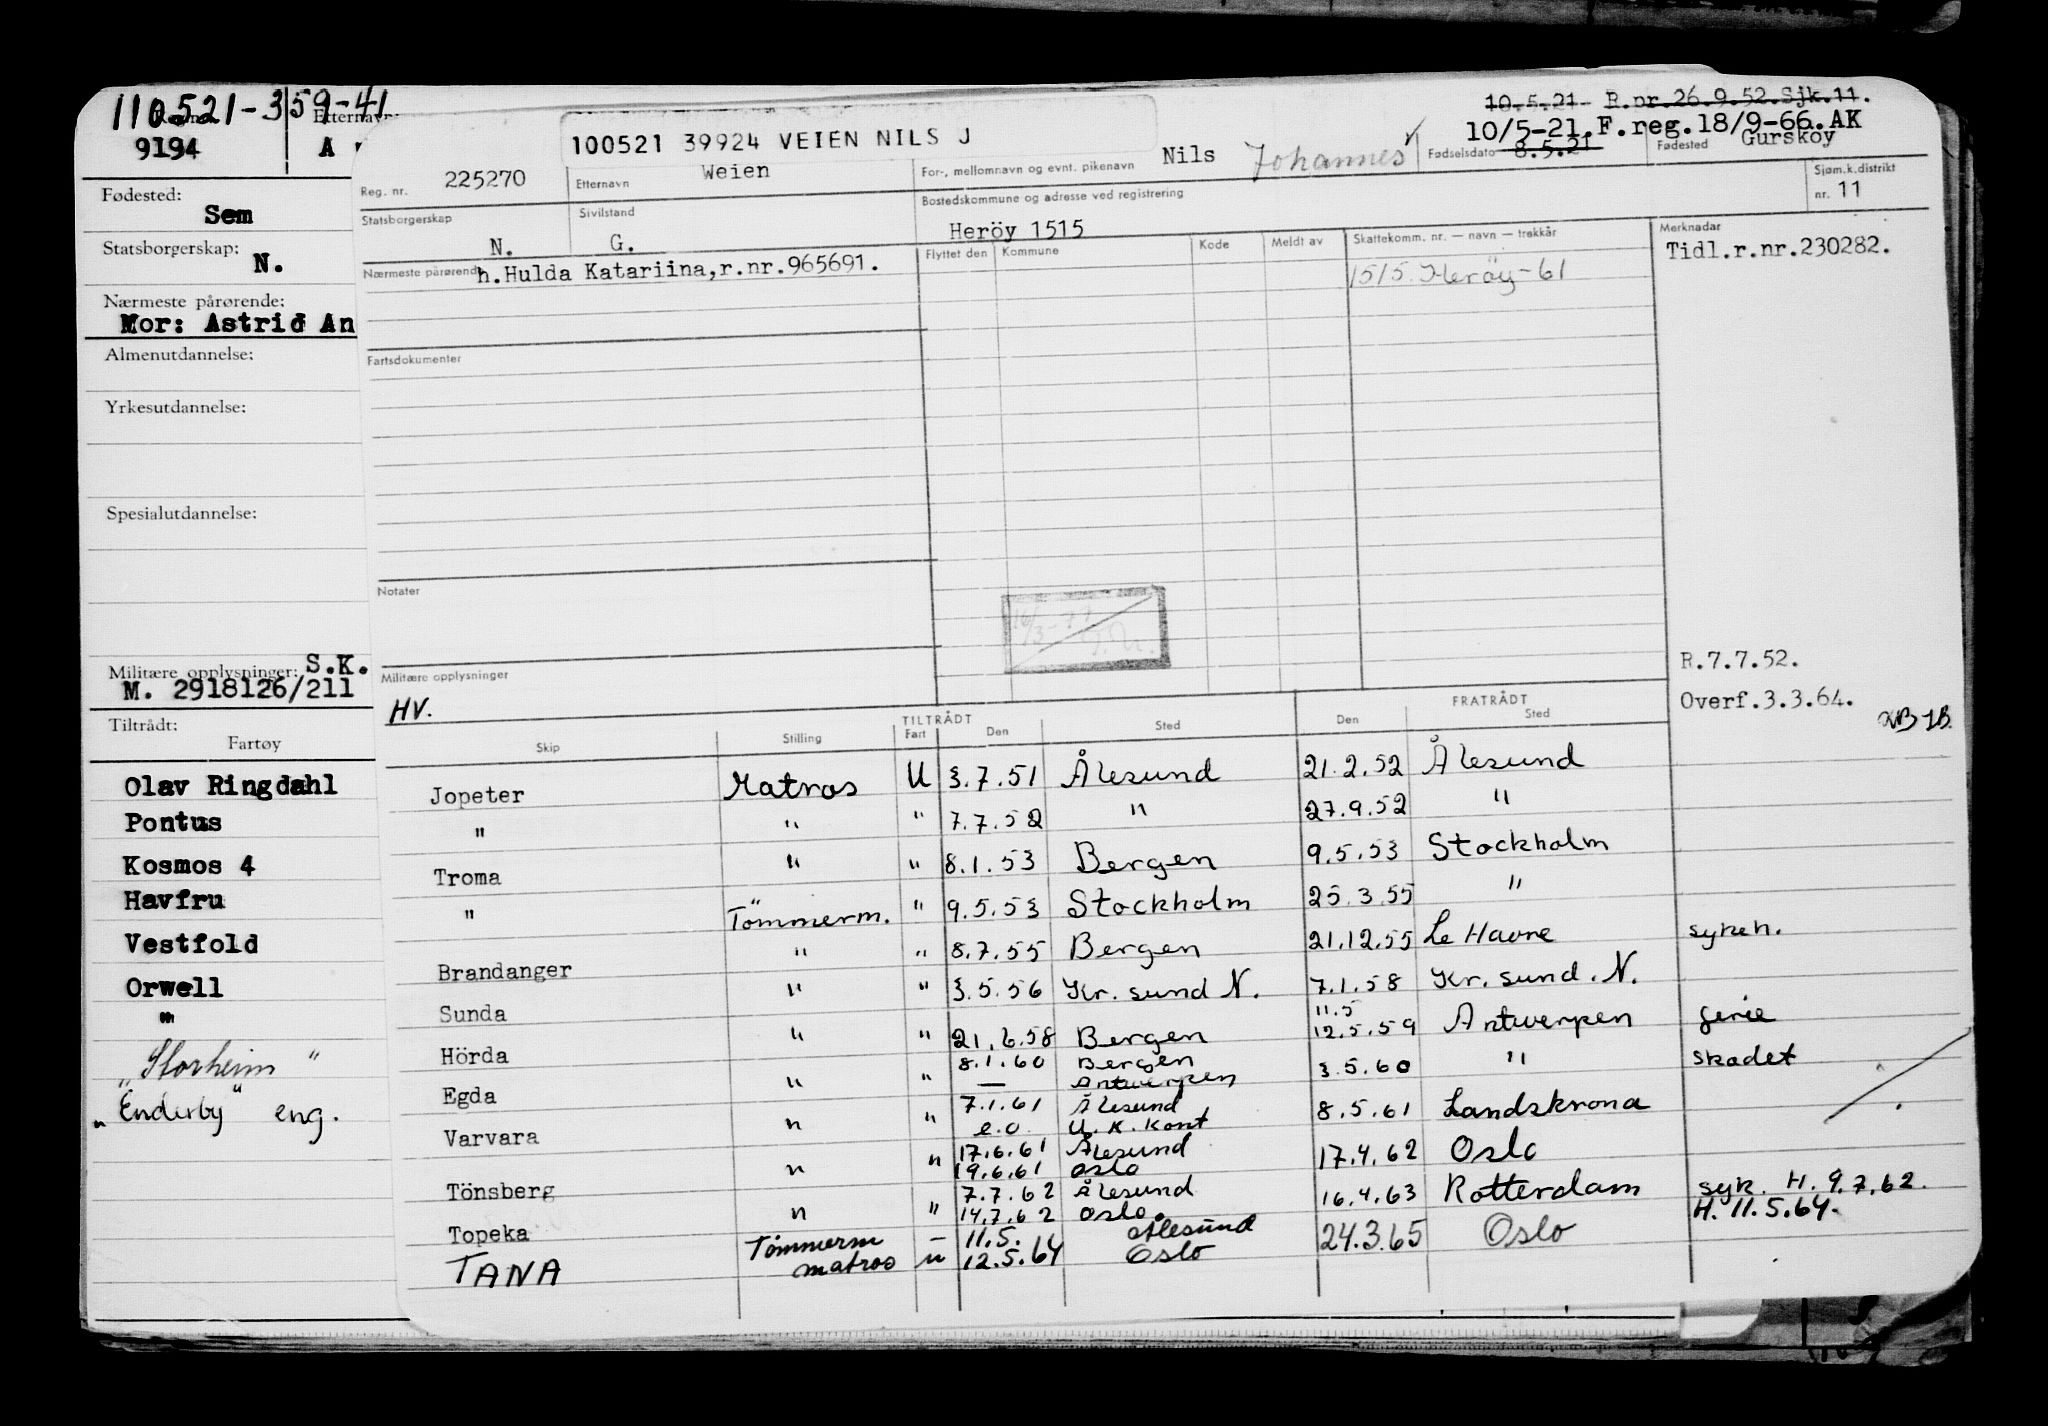 110521-359-41
9194
A
Etternavn:
Fødested:
Sem
Statsborgerskap:
N.
Nærmeste pårørende:
Mor: Astrid An
Almenutdannelse:
Yrkesutdannelse:
Spesialutdannelse:
Militære opplysninger: S.K.
M. 2918126/211
Tiltrådt:
Fartøy
Olav Ringdahl
Pontus
Kosmos 4
Havfru
Vestfold
Orwell
"
"Storheim"
"Enderby" eng.
100521 39924 VEIEN NILS J
10.5.21- R.nr.26.9.52.Sjk.11.
10/5-21.F.reg.18/9-66.AK
Reg. nr. 225270
Etternavn Weien
For-, mellomnavn og evnt. pikenavn Nils Johannes ✓
Fødselsdato 8.5.21
Fødested Gurskøy
Statsborgerskap N.
Sivilstand G.
Bostedskommune og adresse ved registrering
Heröy 1515
Sjøm.k.distrikt
nr. 11
Nærmeste pårørende h.Hulda Katariina,r.nr.965691.
Flyttet den Kommune Kode Meldt av Skattekomm. nr. — navn — trekkår
1515. Herøy-61
Merknader
Tidl.r.nr.230282.
Fartsdokumenter
Notater
16/3-77
Militære opplysninger
HV.
R.7.7.52.
Overf.3.3.64.
TILTRÅDT FRATRÅDT
Skip Stilling Fart Den Sted Den Sted
Jopeter Matros U 3.7.51 Ålesund 21.2.52 Ålesund
" " " 7.7.52 " 27.9.52 "
Troma " " 8.1.53 Bergen 9.5.53 Stockholm
" Tömmerm. " 9.5.53 Stockholm 25.3.55 "
Brandanger " " 8.7.55 Bergen 21.12.55 Le Havre sykeh.
Sunda " " 3.5.56 Kr. sund N. 7.1.58 Kr. sund. N.
11.5
Hörda " " 21.6.58 Bergen 12.5.59 Antwerpen ferie
8.1.60 Bergen
Egda " " — Antwerpen 3.5.60 " skadet
7.1.61 Ålesund
Varvara " " e.o. U.K. Kont 8.5.61 Landskrona
17.6.61 Ålesund
Tönsberg " " 19.6.61 Oslo 17.4.62 Oslo
7.7.62 Ålesund
Topeka " " 14.7.62 Oslo. 16.4.63 Rotterdam syk. H. 9.7.62.
H. 11.5.64.
Tömmerm — 11.5. Ålesund
TANA matros u 12.5.64 Oslo 24.3.65 Oslo